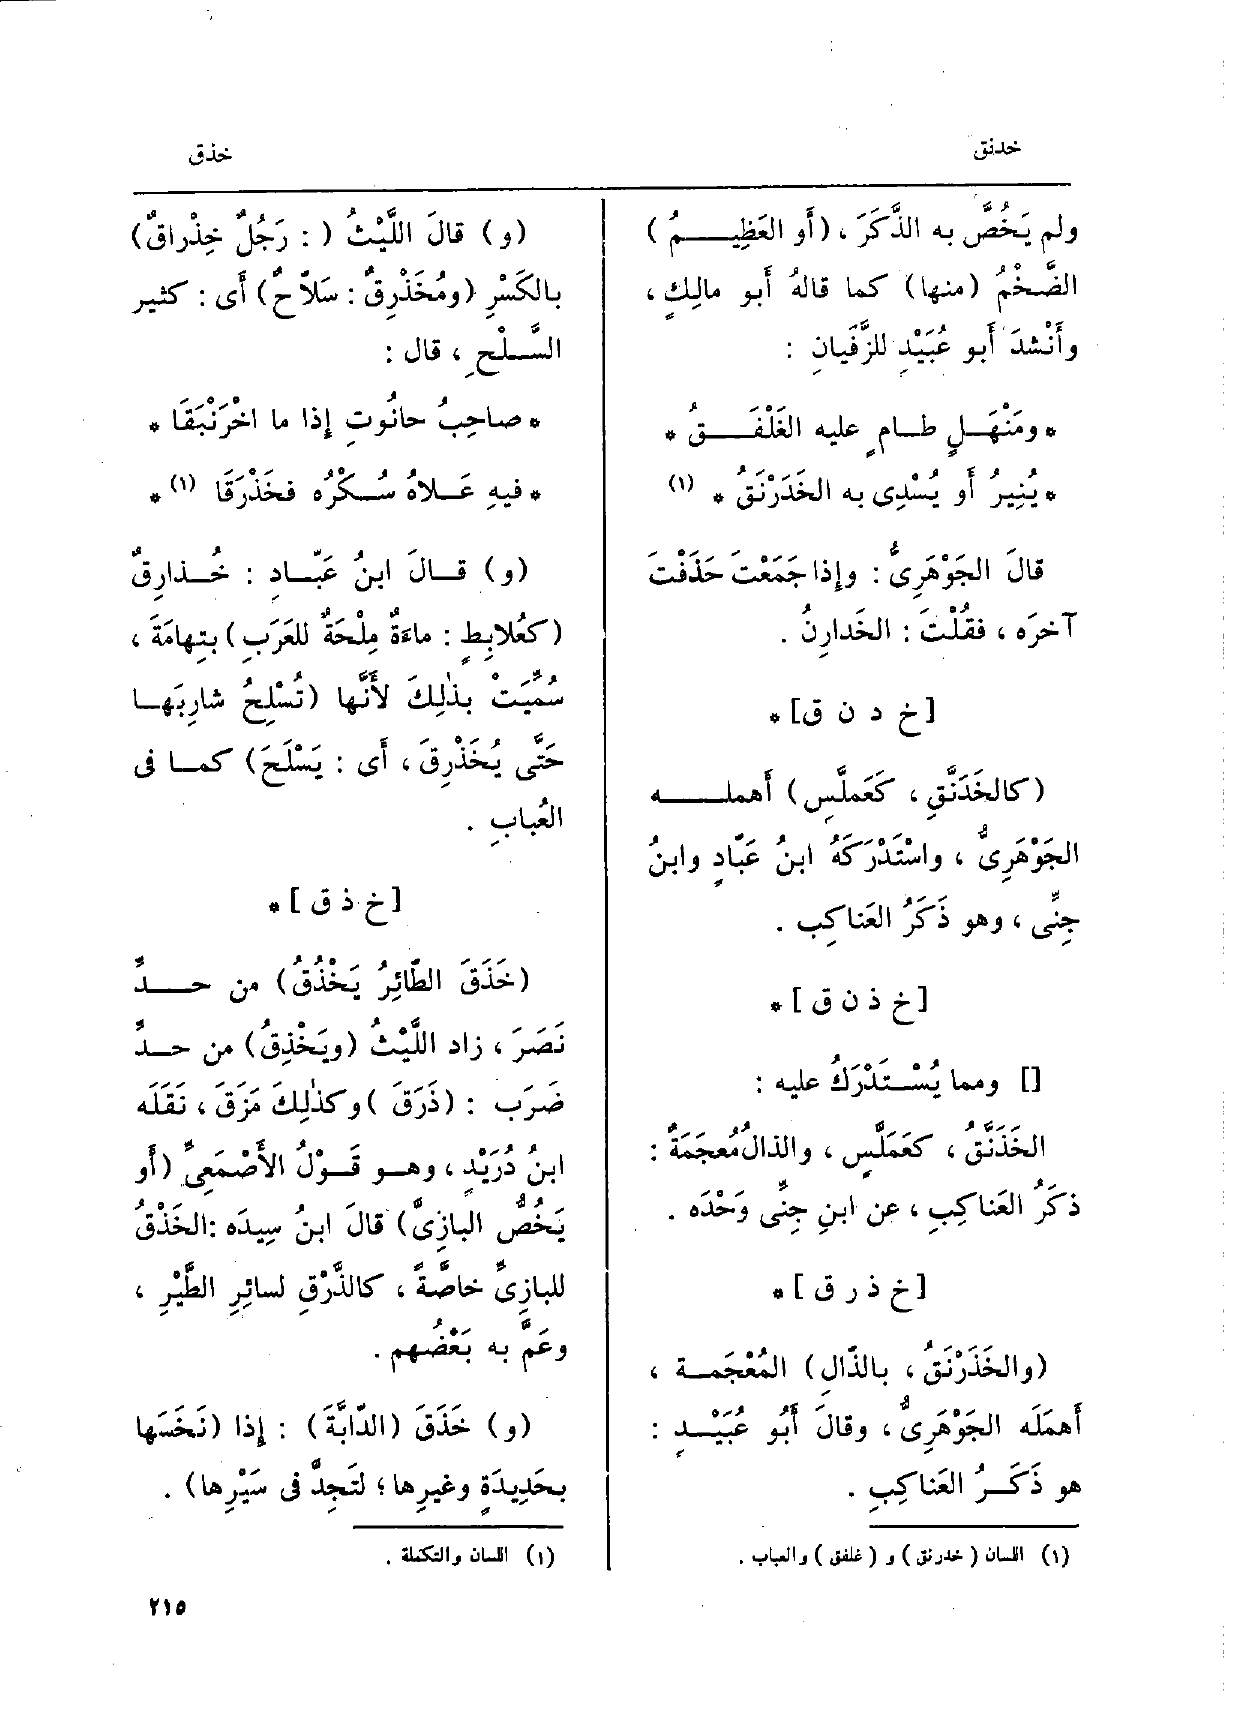 خدنق
خذق
ولم يَخُصَّ به الذَّكَرَ ، (أَو العَظِيـــمُ)
الضَّخْمُ (منها) كما قالهُ أَبو مالِكٍ ،
وأَنْشدَ أَبو عُبَيْدٍ للزَّفَيانِ :
* ومَنْهَـلٍ طـامٍ عليه الغَلْفَــقُ *
* يُنِيرُ أَو يُسْدِى به الخَدَرْنَقُ * (١)
قالَ الجَوْهَرِىُّ : وإِذا جَمَعْتَ حَذَفْتَ
آخرَه ، فقُلْتَ : الخَدارِنُ .
[خ د ن ق] *
(كالخَدَنَّقِ ، كَعَملَّسٍ) أَهملـــه
الجَوْهَرِىُّ ، واسْتَدْرَكَهُ ابنُ عَبّادٍ وابنُ
جِنِّى ، وهو ذَكَرُ العَناكِبِ .
[خ ذ ن ق] *
[] ومما يُسْـتَدْرَكُ عليه :
الخَذَنَّقُ ، كعَمَلَّسٍ ، والذالُ مُعجَمَةٌ :
ذكَرُ العَناكِبِ ، عن ابنِ جِنِّى وَحْدَه .
[خ ذ ر ق] *
(والخَذَرْنَقُ ، بالذّالِ) المُعْجَمـة ،
أَهمَلَه الجَوْهَرِىُّ ، وقالَ أَبُو عُبَيْـدٍ :
هو ذَكَـرُ العَناكِبِ .
(١) اللسان (خدرنق) و (غلفق) والعباب .
(و) قالَ اللَّيْثُ ( : رَجُلٌ خِذْراقٌ)
بالكَسْرِ (ومُخَذْرِقٌ : سَلاّحٌ) أَى : كثير
السَّـلْحِ ، قال :
* صاحِبُ حانُوتٍ إِذا ما اخْرَنْبَقَا *
* فيهِ عَـلاهُ سُـكْرُه فخَذْرَقَا (١) *
(و) قـالَ ابنُ عَبّـادٍ : خُـذارِقٌ
(كعُلابِطٍ : ماءَةٌ مِلْحَةٌ للعَرَبِ) بتِهامَةَ ،
سُمِّيَتْ بذٰلِكَ لأَنَّها (تُسْلِحُ شارِبَهـا
حَتَّى يُخَذْرِقَ ، أَى : يَسْلَحَ) كمـا فى
العُبابِ .
[خ ذ ق] *
(خَذَقَ الطّائِرُ يَخْذُقُ) من حـــدِّ
نَصَرَ ، زاد اللَّيْثُ (ويَخْذِقُ) من حـدِّ
ضَرَبَ : (ذَرَقَ) وكذٰلِكَ مَزَقَ ، نَقَلَه
ابنُ دُرَيْدٍ ، وهـو قَـوْلُ الأَصْمَعِىِّ (أَو
يَخُصُّ البازِىَّ) قالَ ابنُ سِيدَه : الخَذْقُ
للبازِىِّ خاصَّةً ، كالذَّرْقِ لسائِرِ الطَّيْرِ ،
وعَمَّ به بَعْضُهم .
(و) خَذَقَ (الدّابَّةَ) : إِذا (نَخَسَها
بحَدِيدَةٍ وغيرِها ؛ لتَجِدَّ فى سَيْرِها) .
(١) اللسان والتكملة .
٢١٥